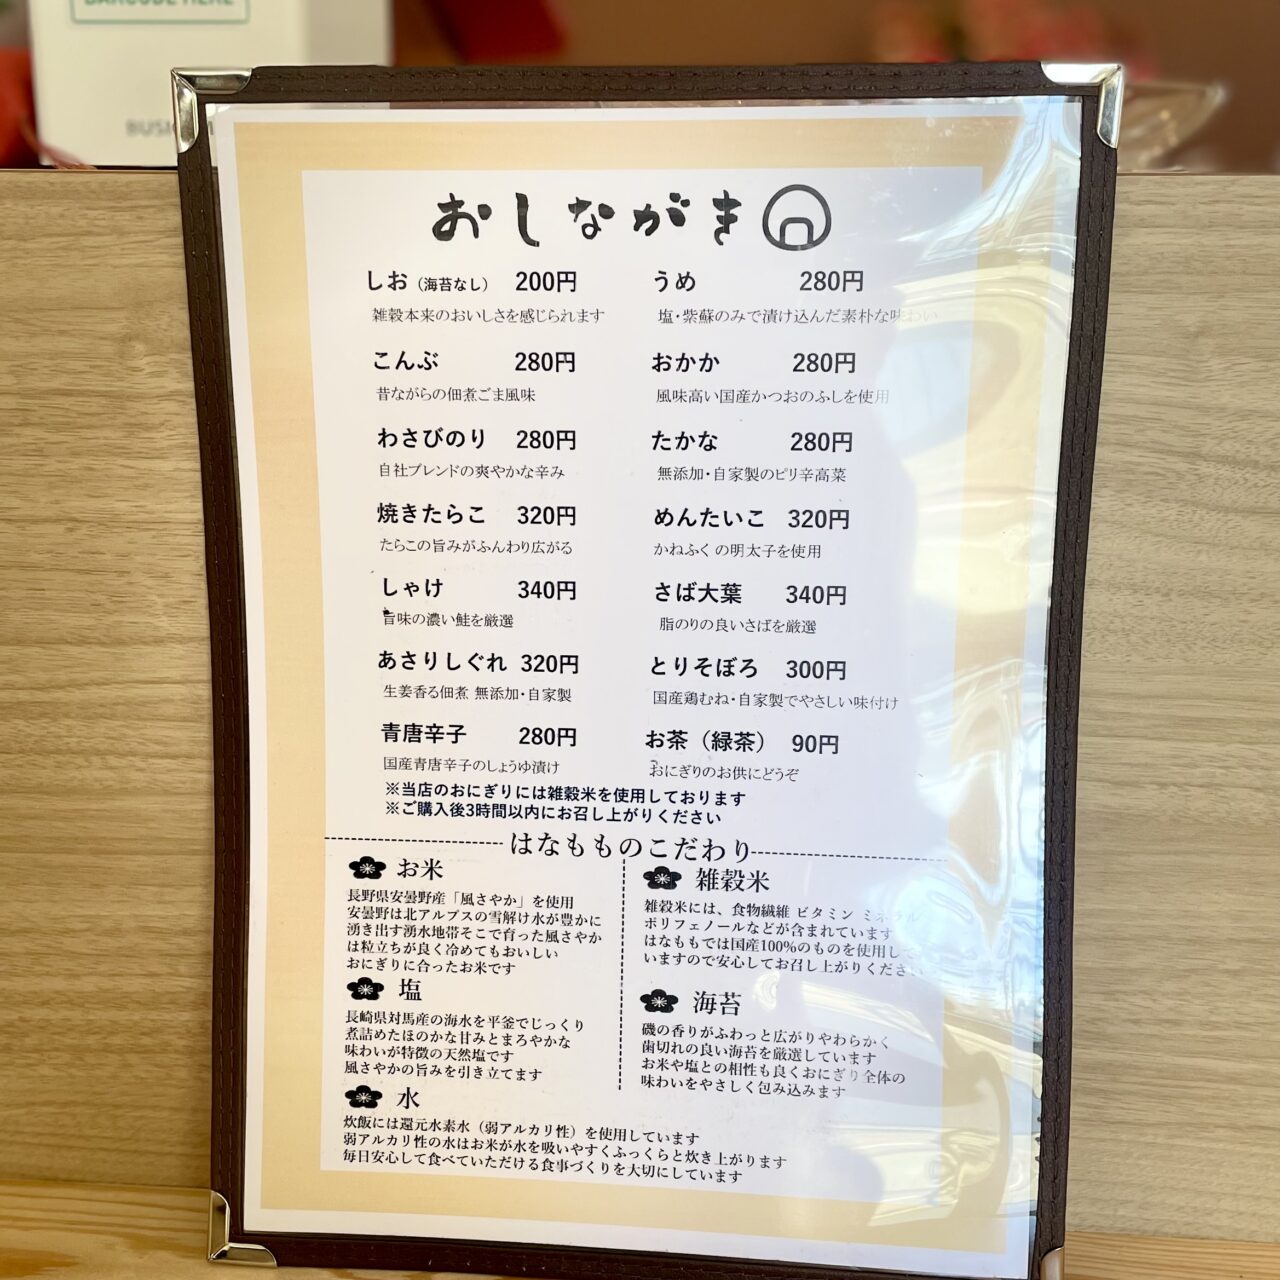 BARCODE HERE
おしながき
しお（海苔なし） 200円
雑穀本来のおいしさを感じられます
うめ 280円
塩・紫蘇のみで漬け込んだ素朴な味わい
こんぶ 280円
昔ながらの佃煮ごま風味
おかか 280円
風味高い国産かつおのふしを使用
わさびのり 280円
自社ブレンドの爽やかな辛み
たかな 280円
無添加・自家製のピリ辛高菜
焼きたらこ 320円
たらこの旨みがふんわり広がる
めんたいこ 320円
かねふく の明太子を使用
しゃけ 340円
旨味の濃い鮭を厳選
さば大葉 340円
脂のりの良いさばを厳選
あさりしぐれ 320円
生姜香る佃煮 無添加・自家製
とりそぼろ 300円
国産鶏むね・自家製でやさしい味付け
青唐辛子 280円
国産青唐辛子のしょうゆ漬け
お茶（緑茶） 90円
おにぎりのお供にどうぞ
※当店のおにぎりには雑穀米を使用しております
※ご購入後3時間以内にお召し上がりください
はなもものこだわり
お米
長野県安曇野産「風さやか」を使用
安曇野は北アルプスの雪解け水が豊かに
湧き出す湧水地帯そこで育った風さやか
は粒立ちが良く冷めてもおいしい
おにぎりに合ったお米です
塩
長崎県対馬産の海水を平釜でじっくり
煮詰めたほのかな甘みとまろやかな
味わいが特徴の天然塩です
風さやかの旨みを引き立てます
雑穀米
雑穀米には、食物繊維 ビタミン ミネラル
ポリフェノールなどが含まれています
はなももでは国産100%のものを使用して
いますので安心してお召し上がりください
海苔
磯の香りがふわっと広がりやわらかく
歯切れの良い海苔を厳選しています
お米や塩との相性も良くおにぎり全体の
味わいをやさしく包み込みます
水
炊飯には還元水素水（弱アルカリ性）を使用しています
弱アルカリ性の水はお米が水を吸いやすくふっくらと炊き上がります
毎日安心して食べていただける食事づくりを大切にしています